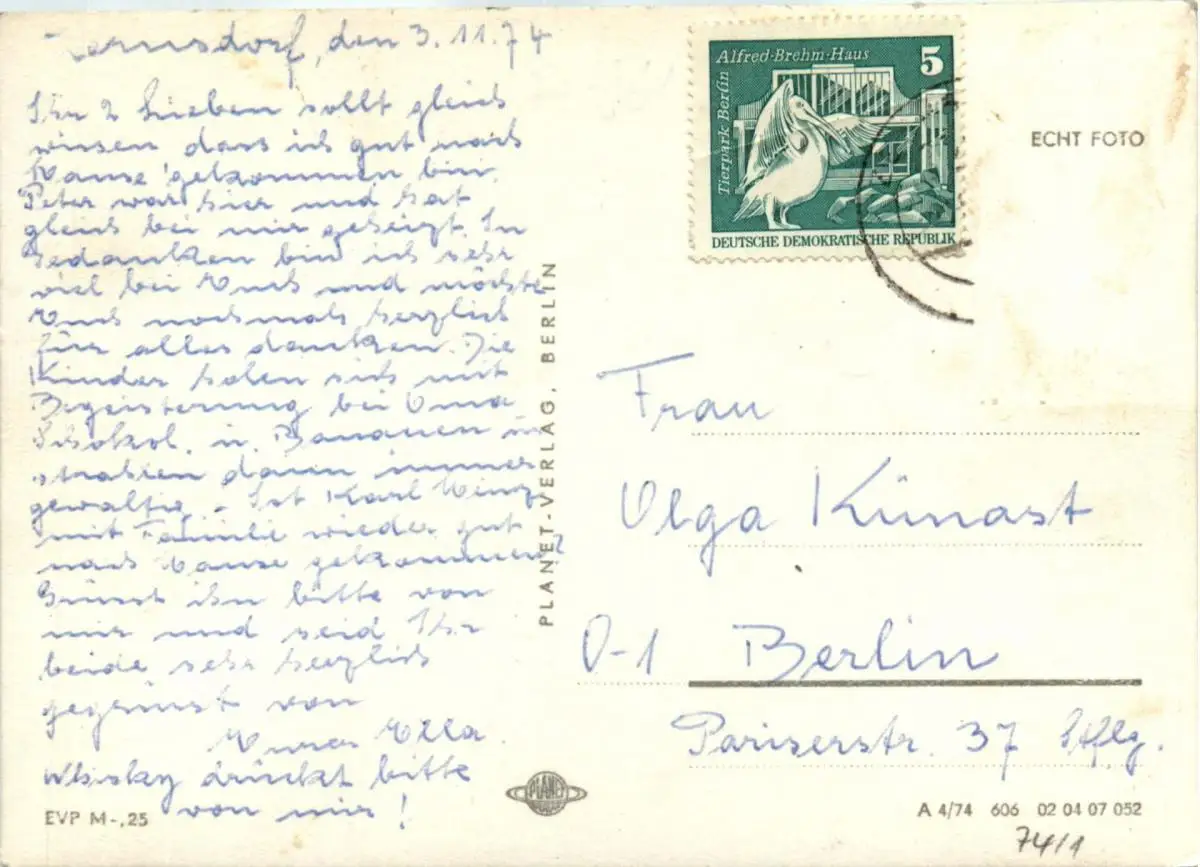 Zernsdorf, den 3.11.74
Ihr 2 Lieben sollt gleich
wissen dass ich gut nach
Hause gekommen bin.
Peter war hier und hat
gleich bei mir geheizt. In
Gedanken bin ich sehr
viel bei Euch und möchte
Euch nochmals herzlich
für alles danken. Die
Kinder holen sich mit
Begeisterung bei Oma
Schokol. u. Bananen u.
strahlen dann immer
gewaltig. - Ist Karl Heinz
mit Familie wieder gut
nach Hause gekommen?
Grüsst ihn bitte von
mir und seid Ihr
beide sehr herzlich
gegrüsst von
Eurer Ella.
Whisky drückt bitte
von mir!
EVP M -,25
PLANET-VERLAG, BERLIN
PLANET
Alfred-Brehm-Haus
5
Tierpark Berlin
DEUTSCHE DEMOKRATISCHE REPUBLIK
ECHT FOTO
Frau
Olga Künast
0-1 Berlin
Pariserstr. 37 Stflg.
A 4/74 606 02 04 07 052
74/1